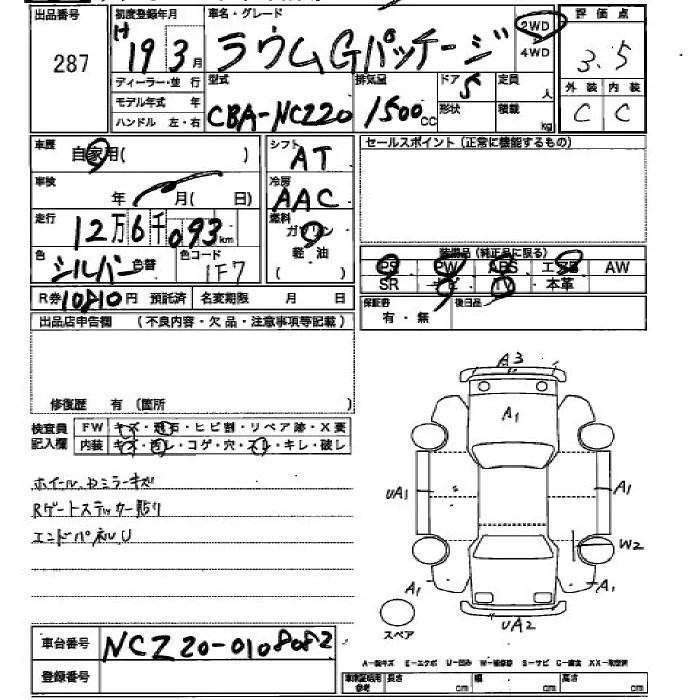 出品番号
287
初度登録年月
H 19 3月
車名・グレード
ラウム Gパッケージ
2WD
4WD
評価点
3.5
外装 内装
C C
ディーラー・並 行
モデル年式 年
ハンドル 左・右
型式
CBA-NCZ20
排気量
1500cc
ドア
5
形状
定員
人
積載
kg
車歴
自家用( )
シフト
AT
車検
年 月( 日)
冷房
AAC
走行
12万6千093km
燃料
ガソリン
軽油
( )
色
シルバー 色替
色コード
1F7
R券10810円 預託済 名変期限 月 日
セールスポイント(正常に機能するもの)
装備品(純正品に限る)
PS PW ABS エアB AW
SR ナビ TV 本革
保証書
有・無
後日品
出品店申告欄 (不良内容・欠品・注意事項等記載)
修復歴 有 (箇所 )
検査員
記入欄
FW キズ・飛石・ヒビ割・リペア跡・X要
内装 キズ・汚レ・コゲ・穴・スレ・キレ・破レ
ホイール、Dミラーキズ
Rゲートステッカー貼り
エンドパネルU
A3
A1
UA1
A1
W2
A1
A1
UA2
スペア
車台番号
NCZ20-0108082
登録番号
A-線キズ E-エクボ U-凹み W-補修跡 S-サビ C-腐食 XX-交換済
車庫証明用
参考
長さ cm
幅 cm
高さ cm